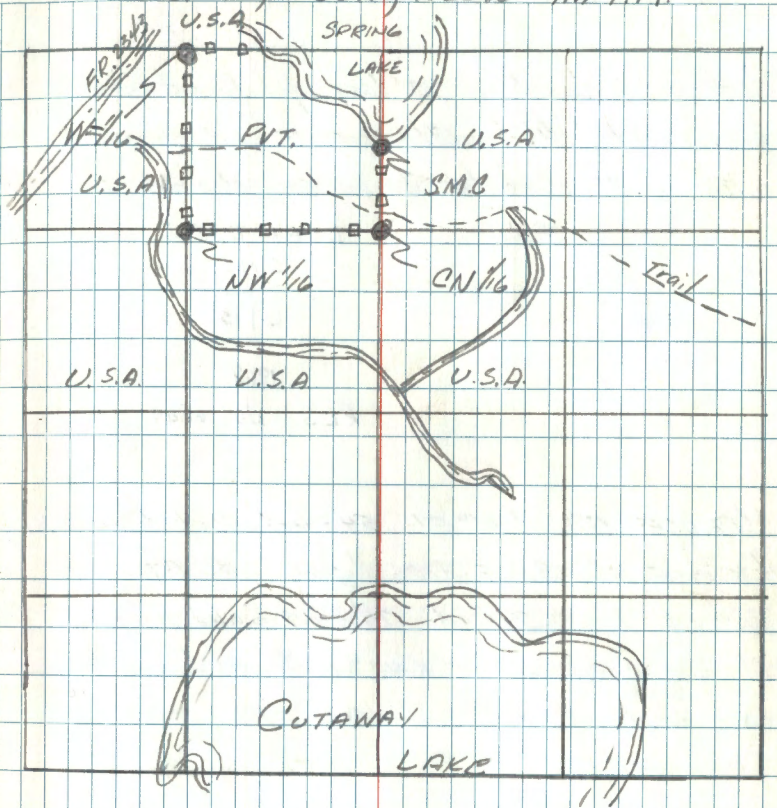 U.S.A
SPRING
LAKE
W 1/16
PVT.
U.S.A
U.S.A
S.M.C
NW 1/16
CN 1/16
Trail
U.S.A.
U.S.A.
U.S.A.
CUTAWAY
LAKE